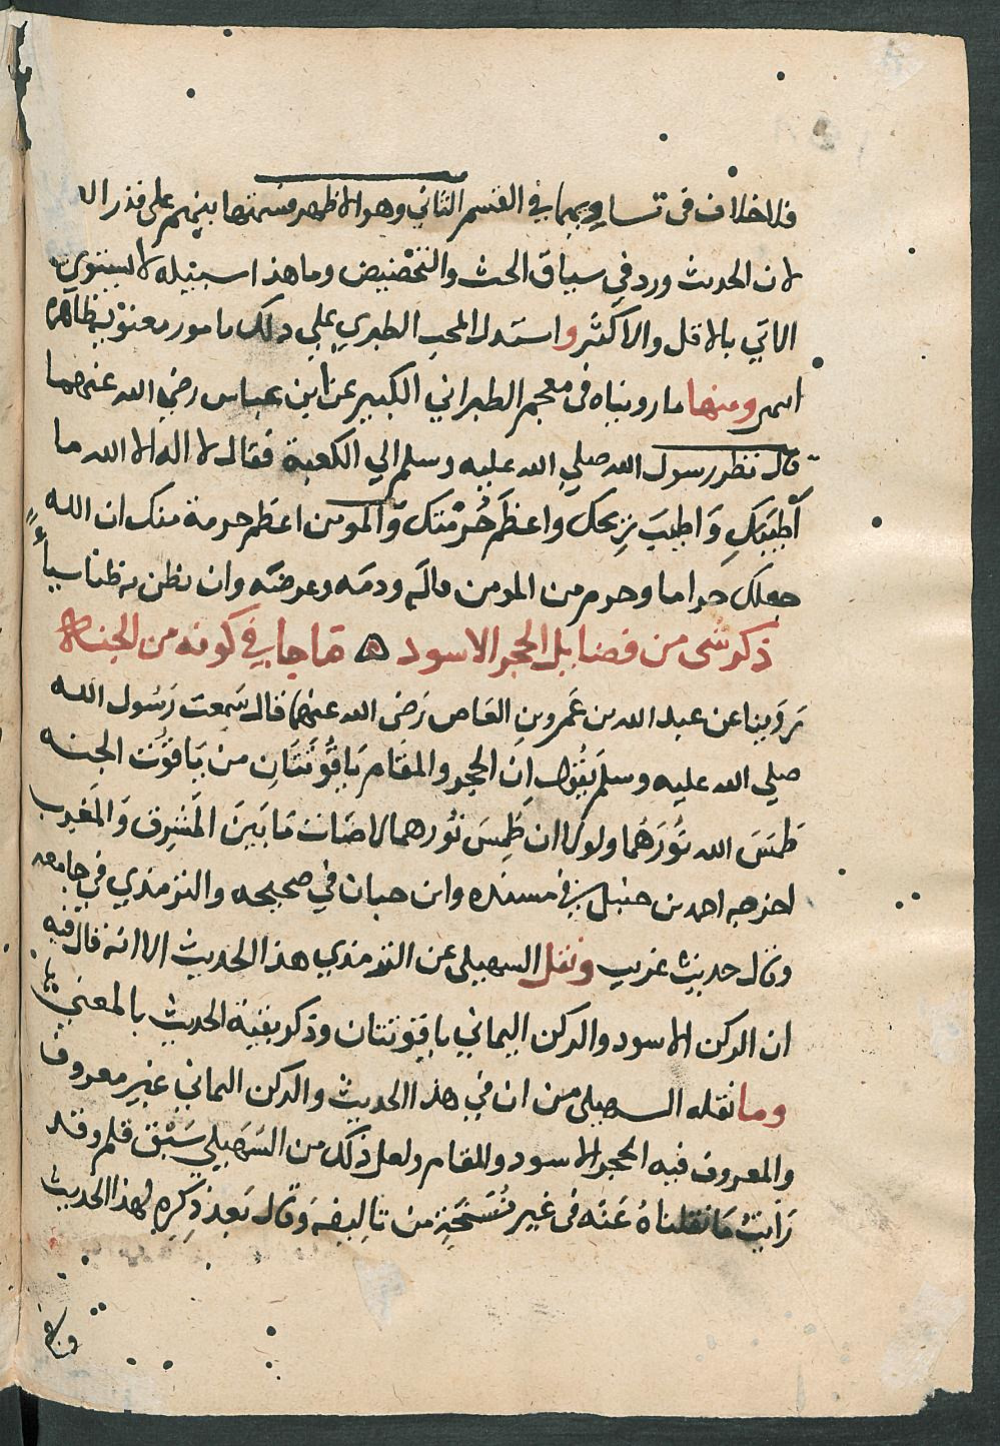 فلا خلاف في تساويهما في القسم الثاني وهو الاظهر قسمتها بينهم على قدر الا
لان الحديث ورد في سياق الحث والتخضيض وما هذا سبيله لا يستوي
الاتي بالاقل والاكثر واستدل المحب الطبري علي ذلك بامور معنوية ظاهرة
انتهى ومنها ما رويناه في معجم الطبراني الكبير عن ابن عباس رضي الله عنهما
قال نظر رسول الله صلي الله عليه وسلم الي الكعبة فقال لا اله الا الله ما
أطيبكِ وَاطيبَ رِيحكِ واعظَم حُرمْتكِ وَالمومن اعظم حرمة منك ان الله
جعلك حراما وحرم من المومن ماله ودمه وعرضه وان نظن به ظنا سيأ
ذكر شى من فضايل الحجر الاسود ما جا في كونه من الجنة
رَوَينا عن عبد الله بن عَمروبنِ العَاص رَضى الله عنهما قال سَمعت رَسُول الله
صلي الله عليه وسلم يَقُول اِن الحجر والمقَام يَاقُوتَتَانِ من يَاقُوت الجنه
طَمَسَ الله نُورَهُما ولولا ان طُمِسَ نُورهما لاضات مَا بَينَ المَشرِق وَالمَغرِب
اخرجه احمد بن حنبل في مسنده وابن حبان في صحيحه والترمذي في جامعه
وقال حديث غريب ونقل السهيلى عن الترمذي هذا الحديث الا انه قال فيه
ان الركن الاسود والركن اليماني ياقوتتان وذكر بقية الحديث بالمعني
وما نقله السهيلى من ان في هذا الحديث والركن اليماني غير معروف
والمعروف فيه الحجر الاسود والمقام ولعل ذلك من السَهيلي سَبْق قلم وقد
رَايت مَا نقلناهُ عَنْه فى غير نُسَخَةٍ من تاليفه وَقال بَعد ذِكرِه لهذا الحديث